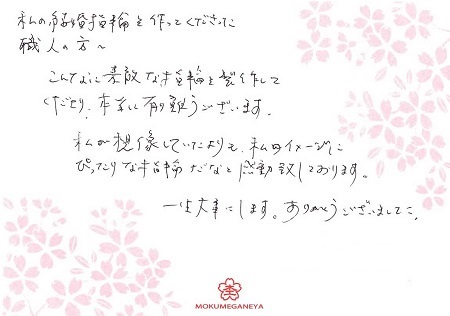 私の結婚指輪を作ってくださった
職人の方へ
こんなに素敵な指輪を製作して
くださり、本当に有り難うございます。
私が想像していたよりも、私のイメージに
ぴったりな指輪だなと感動致しております。
一生大事にします。ありがとうございました。
MOKUMEGANEYA